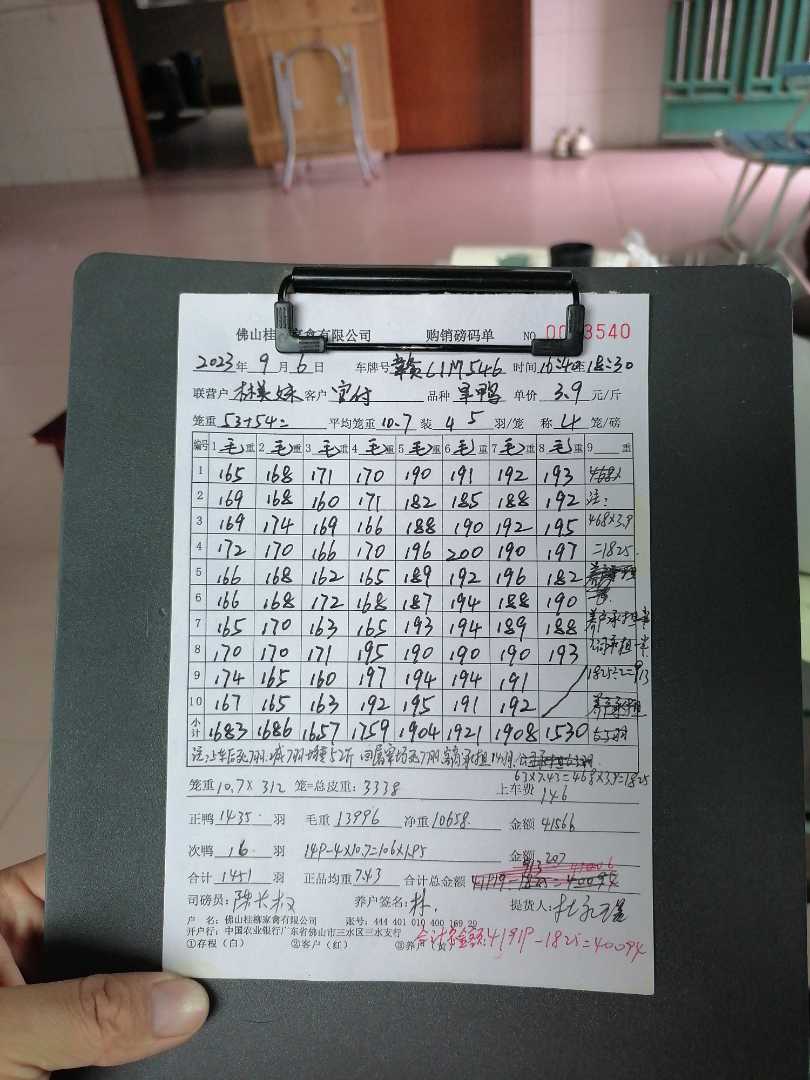 佛山桂柳家禽有限公司 购销磅码单 NO 3540
2023年 9月 6日 车牌号 赣C1M546 时间 16:40至18:30
联营户 客户 官付 品种 旱鸭 单价 3.9 元/斤
笼重 53+54= 平均笼重 10.7 装 4 5 羽/笼 称 4 笼/磅
编号 1 毛重 2 毛重 3 毛重 4 毛重 5 毛重 6 毛重 7 毛重 8 毛重 9 重
1 165 168 171 170 190 191 192 193 468斤
2 169 168 160 171 182 185 188 192 注:
3 169 174 169 166 188 190 192 195 468×3.9
4 172 170 166 170 196 200 190 197 =1825.
5 166 168 162 165 189 192 196 182
6 166 168 172 168 187 194 188 190
7 165 170 163 165 193 194 189 188 养户承担半
8 170 170 171 195 190 190 190 193 公司承担一半
9 174 165 160 197 194 194 191 1825÷2=913
10 167 165 163 192 195 191 192
小计 1683 1686 1657 1759 1904 1921 1908 1530
注:上车后死7羽.减7羽 52斤 死7羽 承担14羽.
63×7.43=468×3.9=1825
笼重 10.7×312 笼=总皮重: 3338 上车费 146
正鸭 1435 羽 毛重 13996 净重 10658 金额 41566
次鸭 16 羽 149-4×10.7=106×1.95 金额 207
913 41006
合计 1451 羽 正品均重 7.43 合计总金额 41919-1825=40094
司磅员: 陈 养户签名: 林. 提货人:
户 名: 佛山桂柳家禽有限公司 账号: 444 401 010 400 169 29
开户行: 中国农业银行广东省佛山市三水区三水支行
①存根 (白) ②客户 (红) ③养户 (黄)
合计总金额:41919-1825=40094